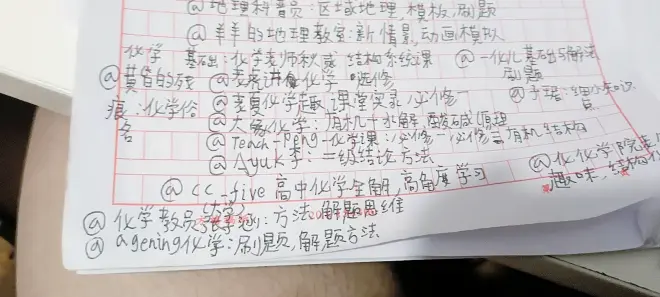 @地理科普员:区域地理,模板,刷题
@羊羊的地理教室:新情景,动画模拟
化学 基础:化学老师秋惑 结构系统课 @一化儿基础与解法 刷题
@黄昏的残痕:化学俗名 @麦亮讲解化学 选修
@麦曼化学趣课堂实录 必修一 @子珺:细小知识
@大 化学:有机+水解
@Teach-Peng-化学课:必修一 必修二 有机 结构
@AyuK李:二级结论 方法
@化化学 趣味,结构
@cc_five 高中化学全解,高角度学习
@化学教员(大学)张学涵:方法,解题思维
@agening化学:刷题,解题方法